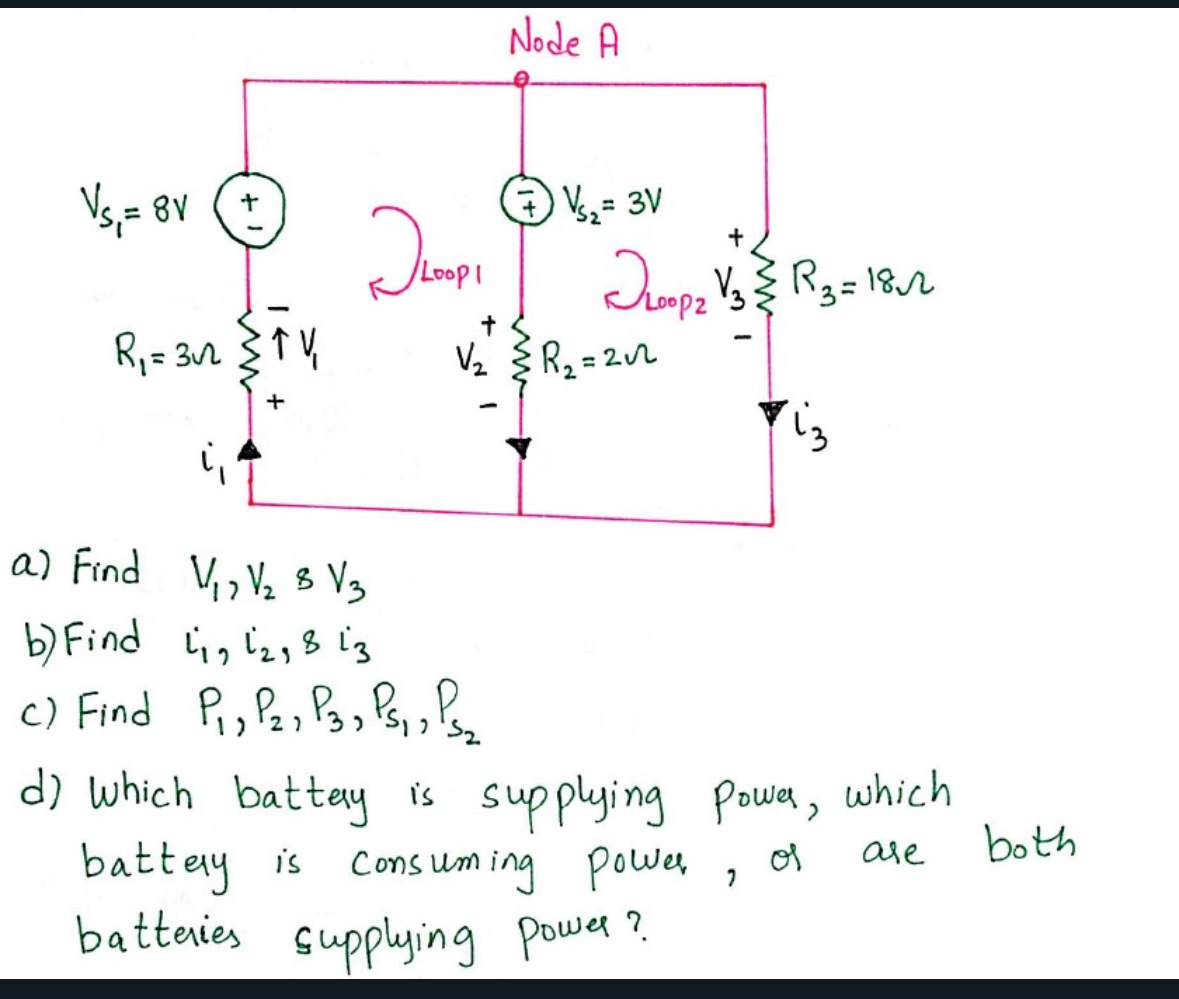 Node A
Vs₁ = 8V
+
-
-
+
Vs₂ = 3V
Loop1
Loop2
+
V₃
-
R₃ = 18Ω
R₁ = 3Ω
-
↑ V₁
+
+
V₂
-
R₂ = 2Ω
i₁
i₃
a) Find V₁, V₂ & V₃
b) Find i₁, i₂, & i₃
c) Find P₁, P₂, P₃, Ps₁, Ps₂
d) Which battery is supplying power, which
battery is consuming power, or are both
batteries supplying power?